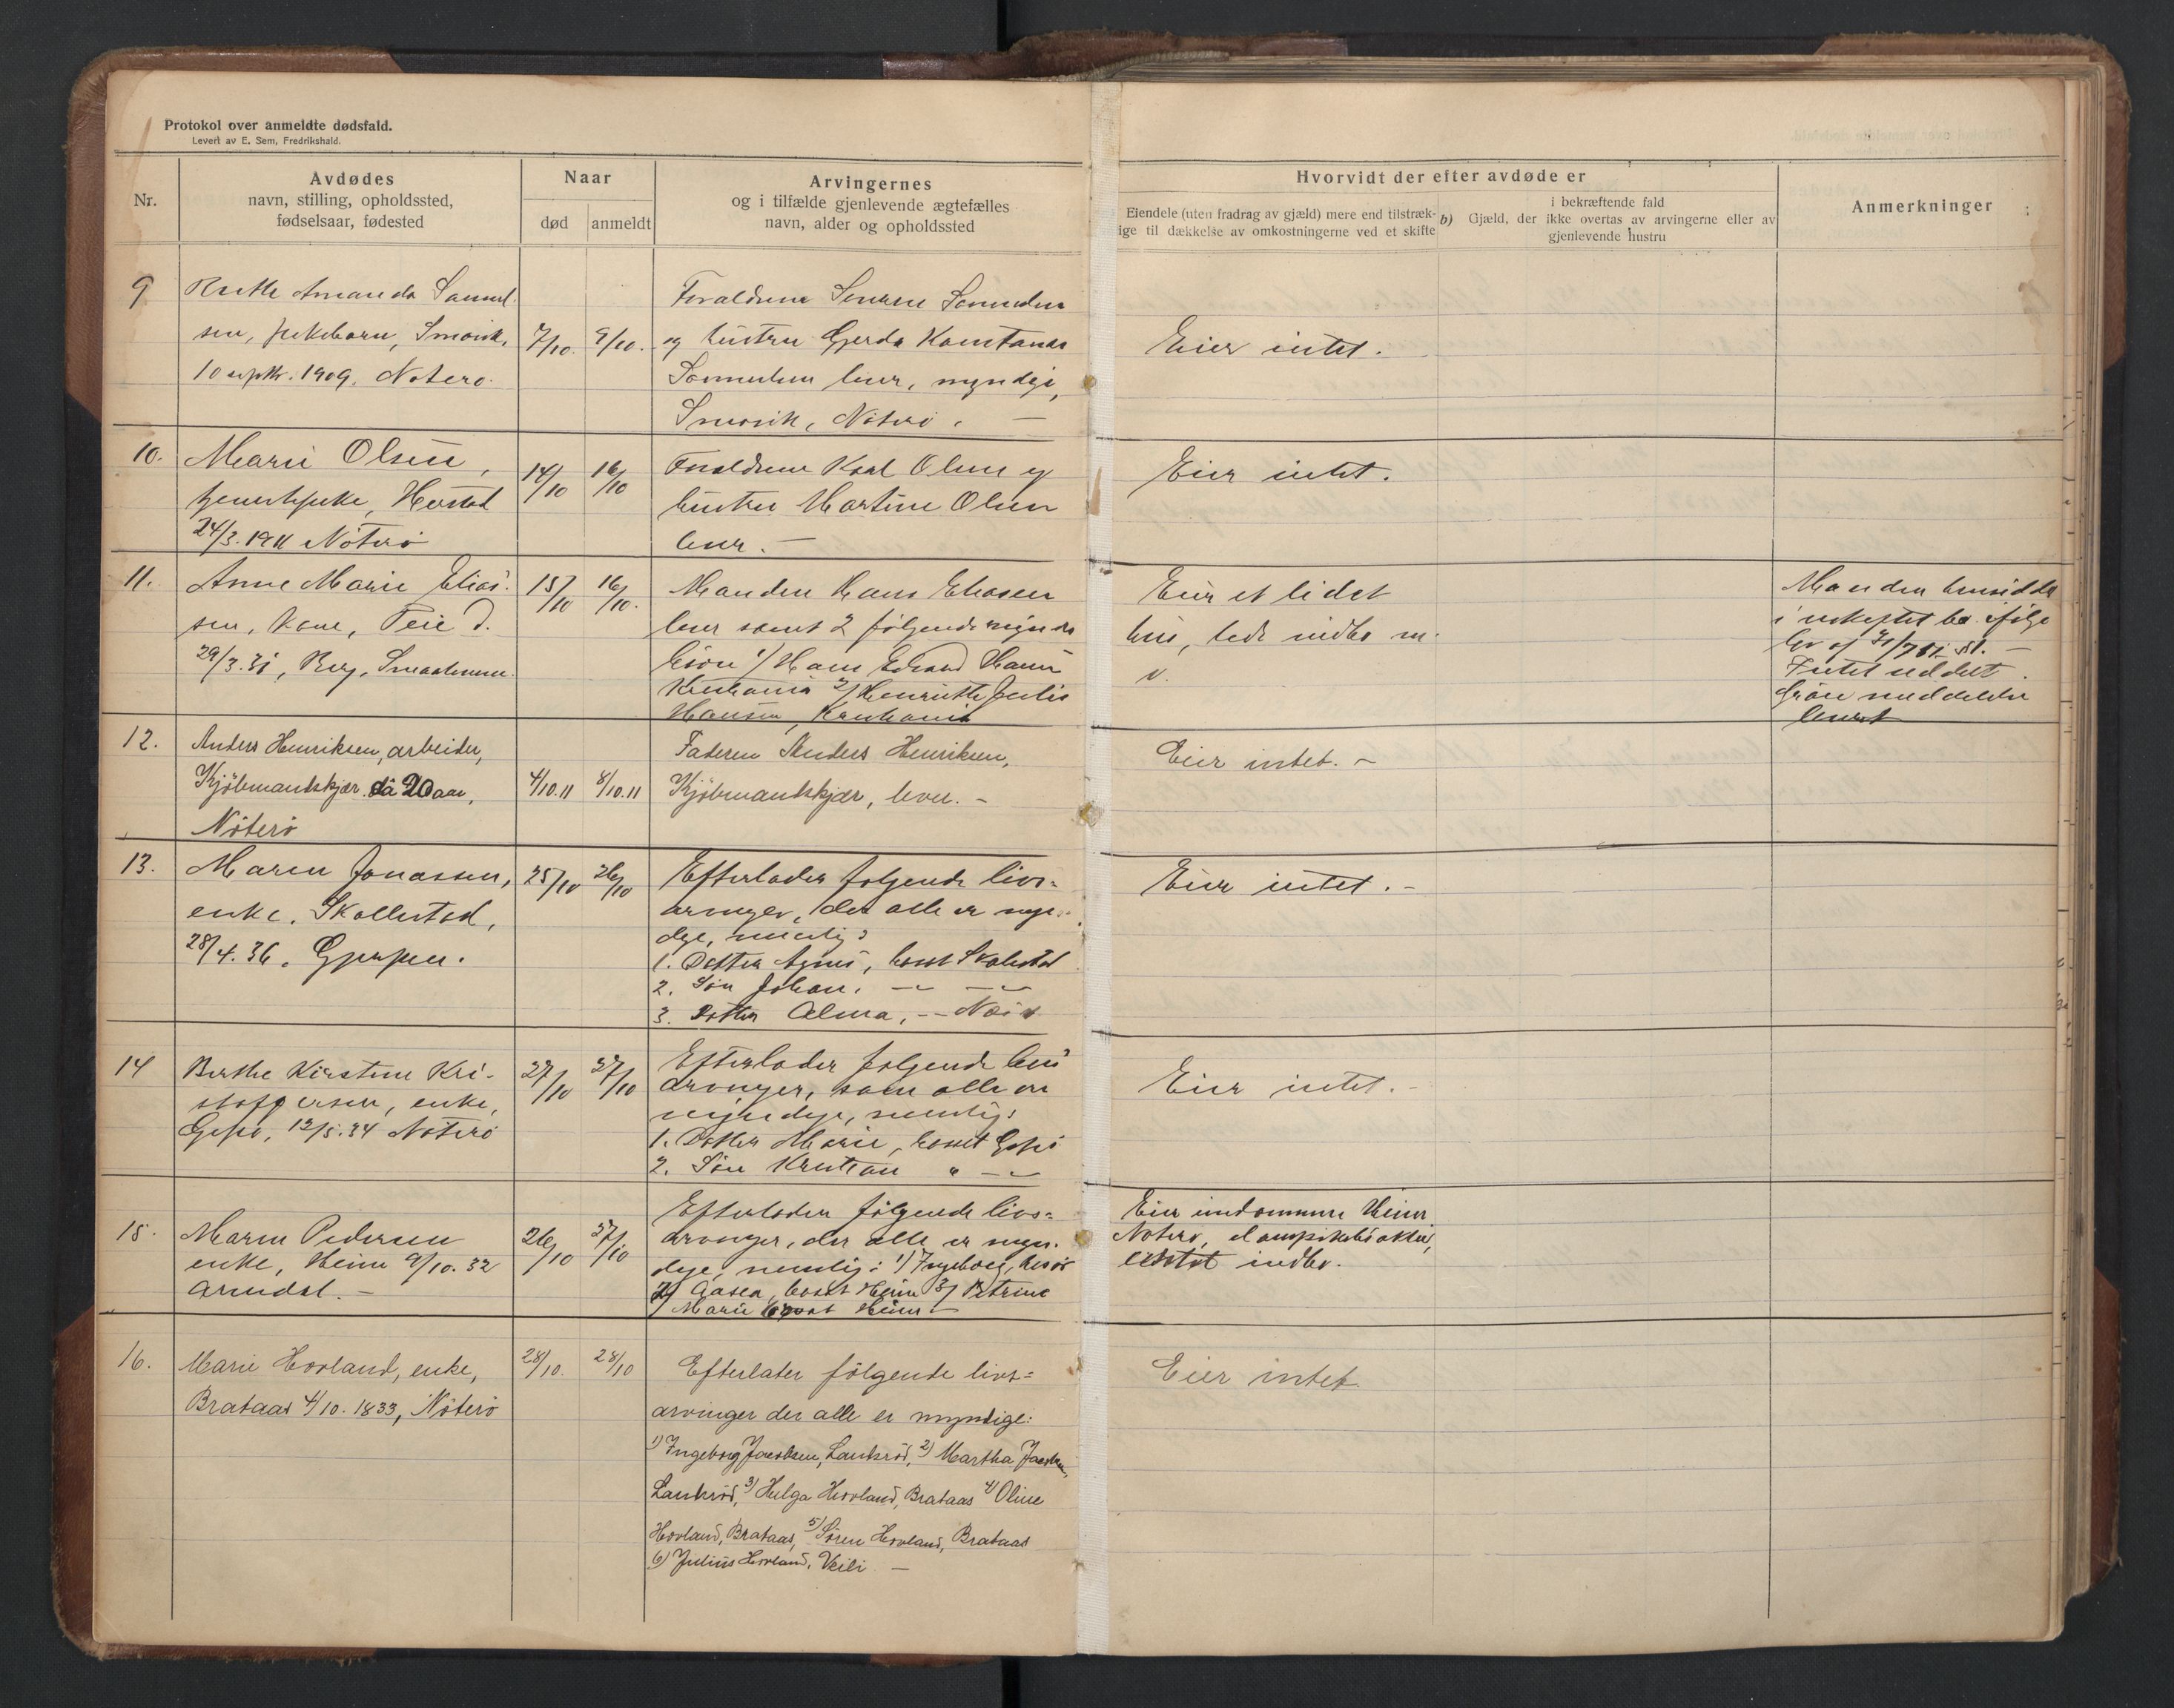 Protokol over anmeldte dødsfald.
Levert av E. Sem, Fredrikshald.
Nr.
Avdødes
navn, stilling, opholdssted,
fødselsaar, fødested
Naar
død
anmeldt
Arvingernes
og i tilfælde gjenlevende ægtefælles
navn, alder og opholdssted
Hvorvidt der efter avdøde er
Eiendele (uten fradrag av gjæld) mere end tilstræk-
ige til dækkelse av omkostningerne ved et skifte
b) Gjæld, der i bekræftende fald
ikke overtas av arvingerne eller av
gjenlevende hustru
Anmerkninger
9
Ruth Amanda Samuel-
sen, pikebarn, Smørvik,
10 septbr. 1909. Nøterø.
7/10.
9/10.
Forældrene Severin Samuelsen
og hustru Gjerda Konstanse
Samuelsen lever, myndige,
Smørvik, Nøterø. —
Eier intet.
10.
Marie Olsen,
tjenestepike, Herstad
24/3. 1911 Nøterø
14/10
16/10
Forældrene Karl Olsen og
hustru Martine Olsen
lever. —
Eier intet.
11.
Anne Marie Elias-
sen, kone, Teie d.
29/3. 31, Berg, Smaalenene.
15/10
16/10.
Manden Hans Eliasen
lever samt 2 følgende myndige
børn 1/ Hans Edvard Hansen
Kristiania 2/ Henriette Julie
Hansen, Kristiania
Eier et lidet
hus, lidt indbo m.
v.
Manden hensidder
i uskiftet bo ifølge
Intet uddelt.
12.
Anders Henriksen, arbeider,
Kjöbmandskjær. 20 aar,
Nöterö
4/10.11
8/10.11
Faderen Anders Henriksen,
Kjöbmandskjær, lever. -
Eier intet. -
13.
Maren Jonassen,
enke, Skallestad,
28/4. 36. Gjerpen.
25/10
26/10
Efterlader følgende livs-
arvinger, der alle er myn-
dige, nemlig:
1. Datter Agnes, bosat Skallestad
2. Søn Johan, — —
3. Datter Alma, —
Eier intet. -
14
Berthe Kirstine Kri-
stoffersen, enke,
Gipø, 12/5. 34 Nøterø
27/10
27/10
Efterlader følgende livs
arvinger, som alle er
myndige, nemlig:
1. Datter Marie, bosat Gipø
2. Søn Kristian " —
Eier intet. -
15.
Maren Pedersen
enke, Heim 9/10. 32
Arendal. —
26/10
27/10
Efterlader følgende livs-
arvinger, der alle er myn-
dige, nemlig: 1) Ingeborg,
2) Aasea, bosat Heim 3) Petrine
Marie bosat Heim —
Eier eiendommen Heim
Nøterø, dampskibsaktier,
indbo.
16.
Marie Hovland, enke,
Brataas 4/10. 1833, Nöterö
28/10.
28/10
Efterlater fölgende livs-
arvinger der alle er myndige:
1) Ingeborg Jacobsen, Lankröd, 2) Martha Jacobsen,
Lankröd, 3) Helga Hovland, Brataas 4) Oline
Hovland, Brataas, 5) Sören Hovland, Brataas
6) Julius Hovland, —
Eier intet.